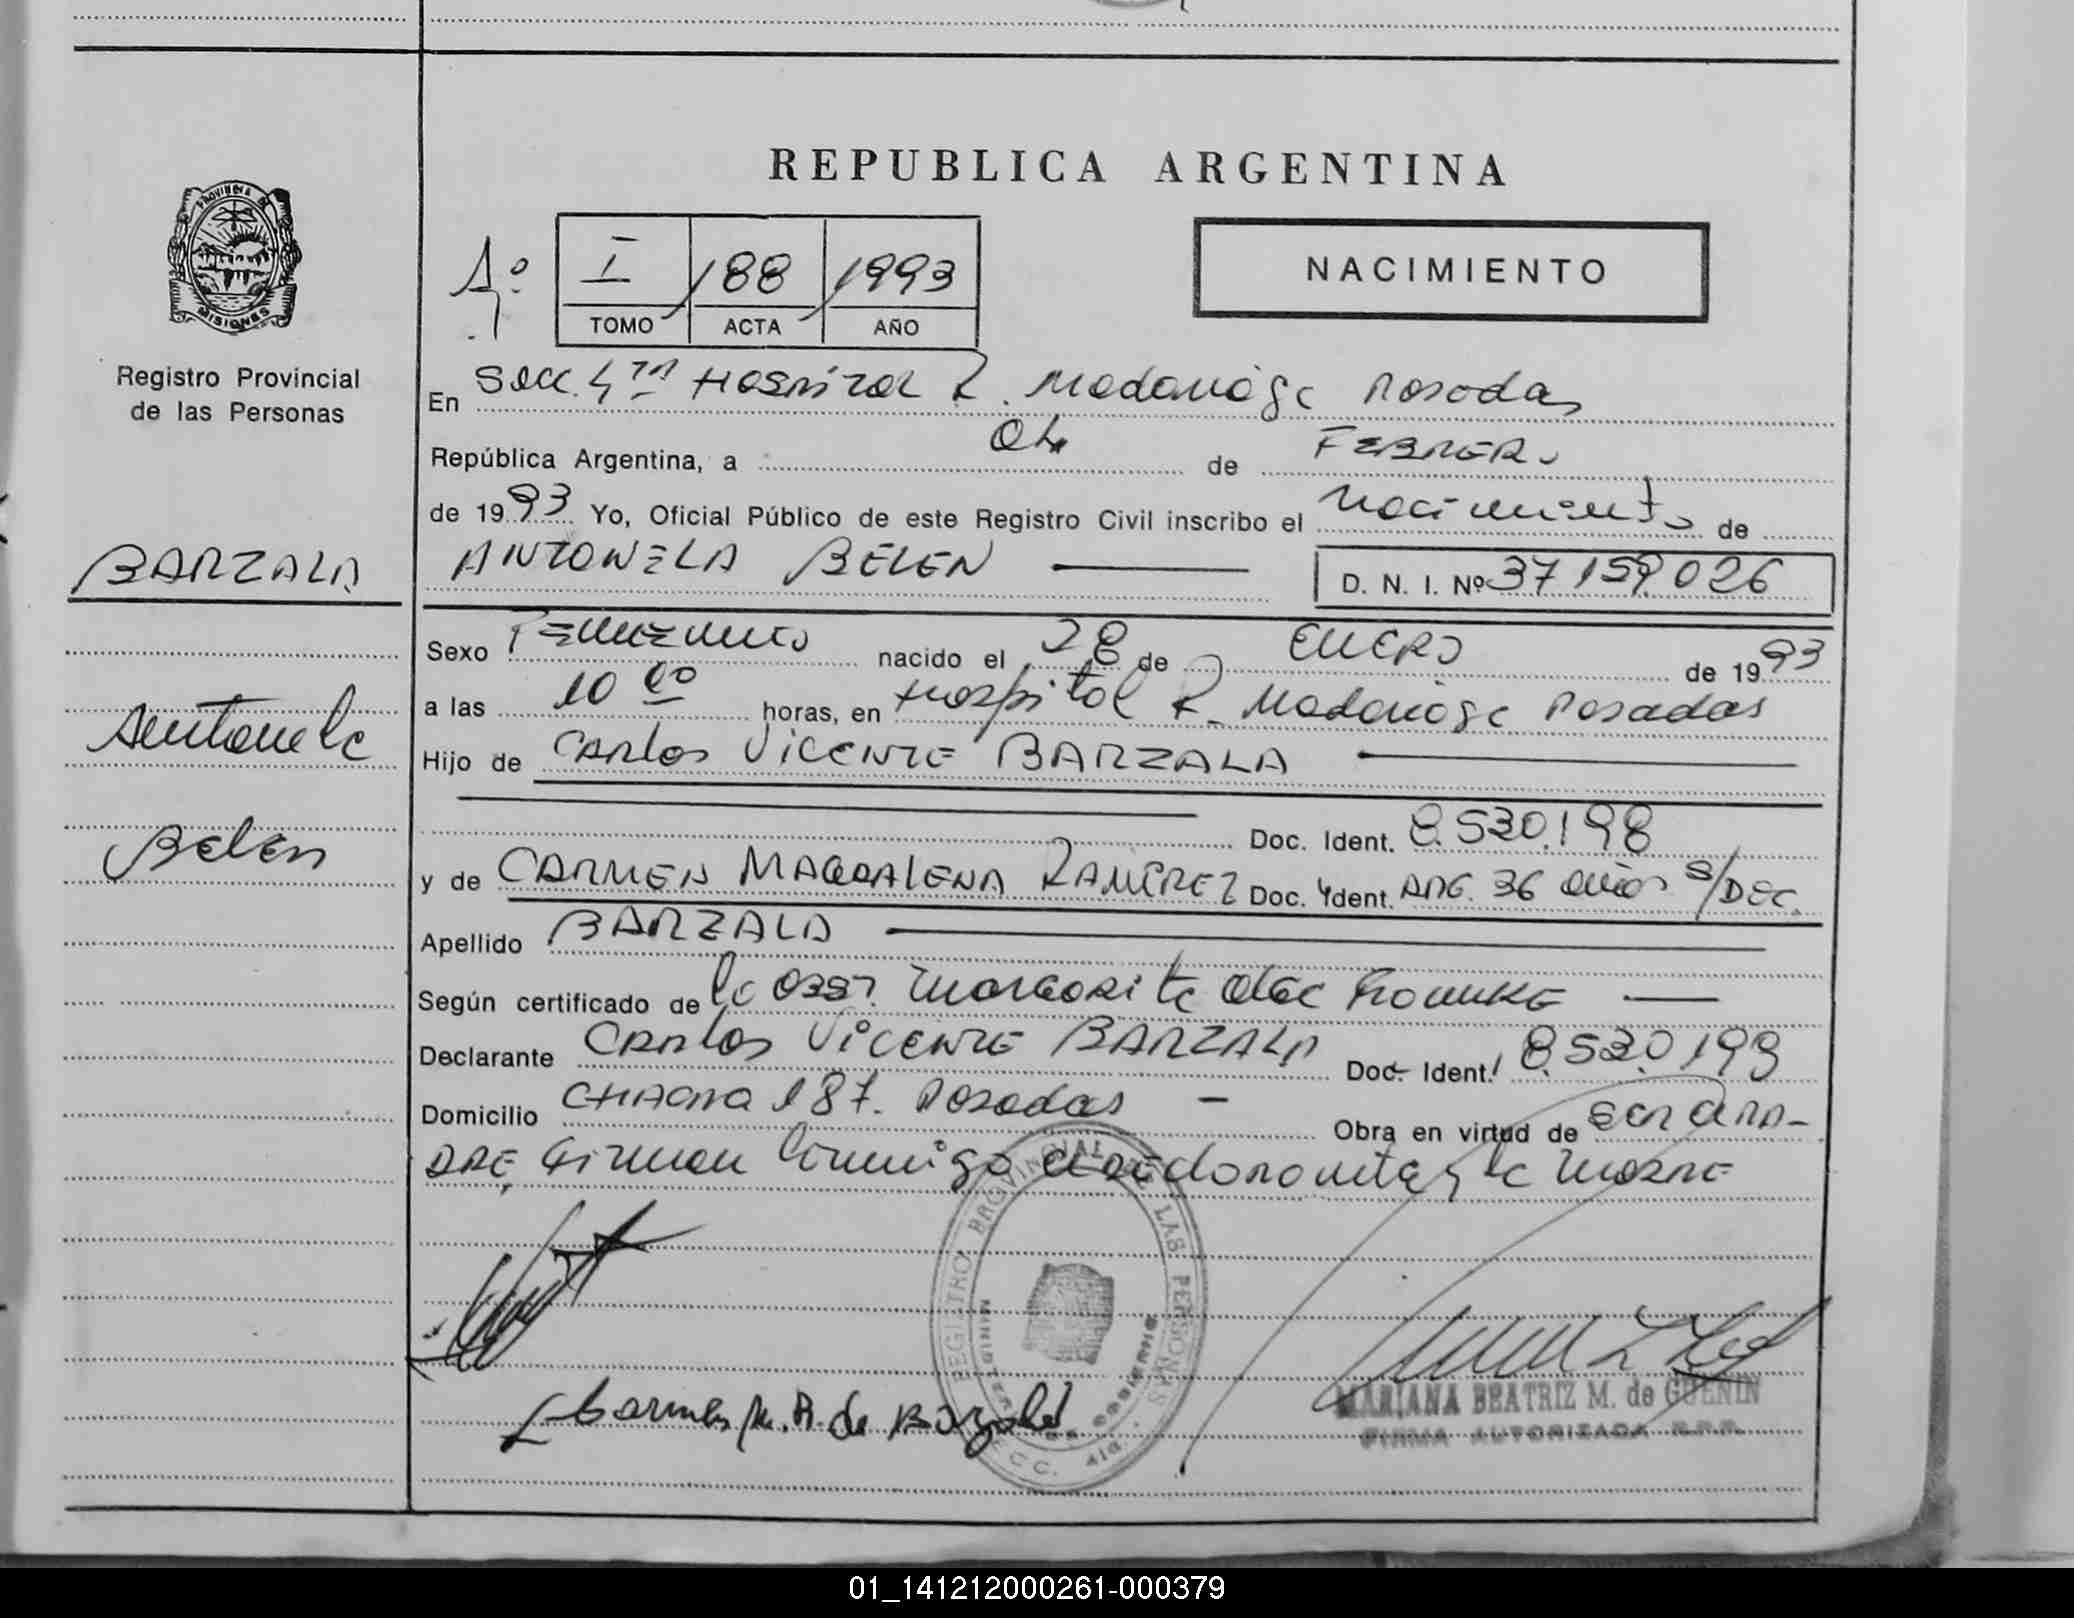 REPUBLICA ARGENTINA
PROVINCIA DE
MISIONES
Registro Provincial
de las Personas
I 188 1993
TOMO ACTA AÑO
NACIMIENTO
En Secc. 4ta Hospital R. Madariaga Posadas
República Argentina, a de FEBRERO
de 1993 Yo, Oficial Público de este Registro Civil inscribo el nacimiento de
ANTONELA BELEN
D. N. I. Nº 37159.026
BARZALA
Antonela
Belen
Sexo Femenino nacido el 28 de ENERO de 1993
a las 10 00 horas, en Hospital R. Madariaga Posadas
Hijo de Carlos Vicente BARZALA
Doc. Ident. 8.530.198
y de CARMEN MAGDALENA RAMIREZ Doc. Ident. ARG. 36 años s/DOC.
Apellido BARZALA
Según certificado de la Obst. Margarita
Declarante Carlos Vicente BARZALA Doc. Ident. 8.530.198
Domicilio CHACRA 187. Posadas - Obra en virtud de ser el PA-
DRE, Firman conmigo el declarante y la madre
REGISTRO PROVINCIAL DE LAS PERSONAS
Carmen M. R. de Barzala
MARIANA BEATRIZ M. de GUENIN
FIRMA AUTORIZADA R.P.P.
01_141212000261-000379